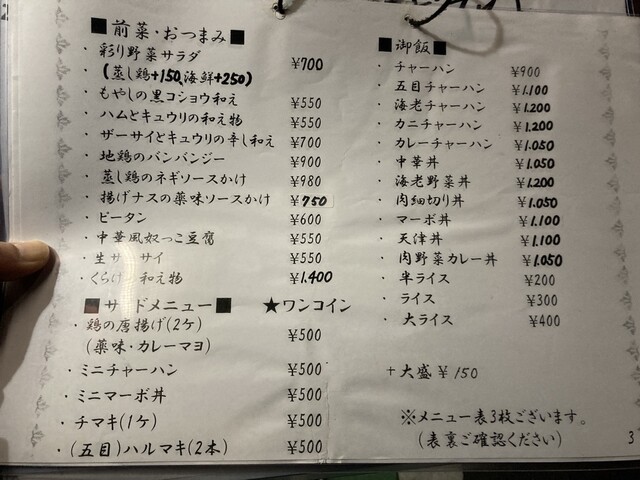 ■前菜・おつまみ■
・彩り野菜サラダ ¥700
(蒸し鶏+150,海鮮+250)
・もやしの黒コショウ和え ¥550
・ハムとキュウリの和え物 ¥550
・ザーサイとキュウリの辛し和え ¥700
・地鶏のバンバンジー ¥900
・蒸し鶏のネギソースかけ ¥980
・揚げナスの薬味ソースかけ ¥750
・ピータン ¥600
・中華風奴っこ豆腐 ¥550
・生サ サイ ¥550
・くらげ 和え物 ¥1.400
■サイドメニュー■ ★ワンコイン
・鶏の唐揚げ(2ケ) ¥500
(薬味・カレーマヨ)
・ミニチャーハン ¥500
・ミニマーボ丼 ¥500
・チマキ(1ケ) ¥500
・(五目)ハルマキ(2本) ¥500
■御飯■
・チャーハン ¥900
・五目チャーハン ¥1.100
・海老チャーハン ¥1.200
・カニチャーハン ¥1.200
・カレーチャーハン ¥1.050
・中華丼 ¥1.050
・海老野菜丼 ¥1.200
・肉細切り丼 ¥1.050
・マーボ丼 ¥1.100
・天津丼 ¥1.100
・肉野菜カレー丼 ¥1.050
・半ライス ¥200
・ライス ¥300
・大ライス ¥400
+大盛 ¥150
※メニュー表3枚ございます。
(表裏ご確認ください)
3